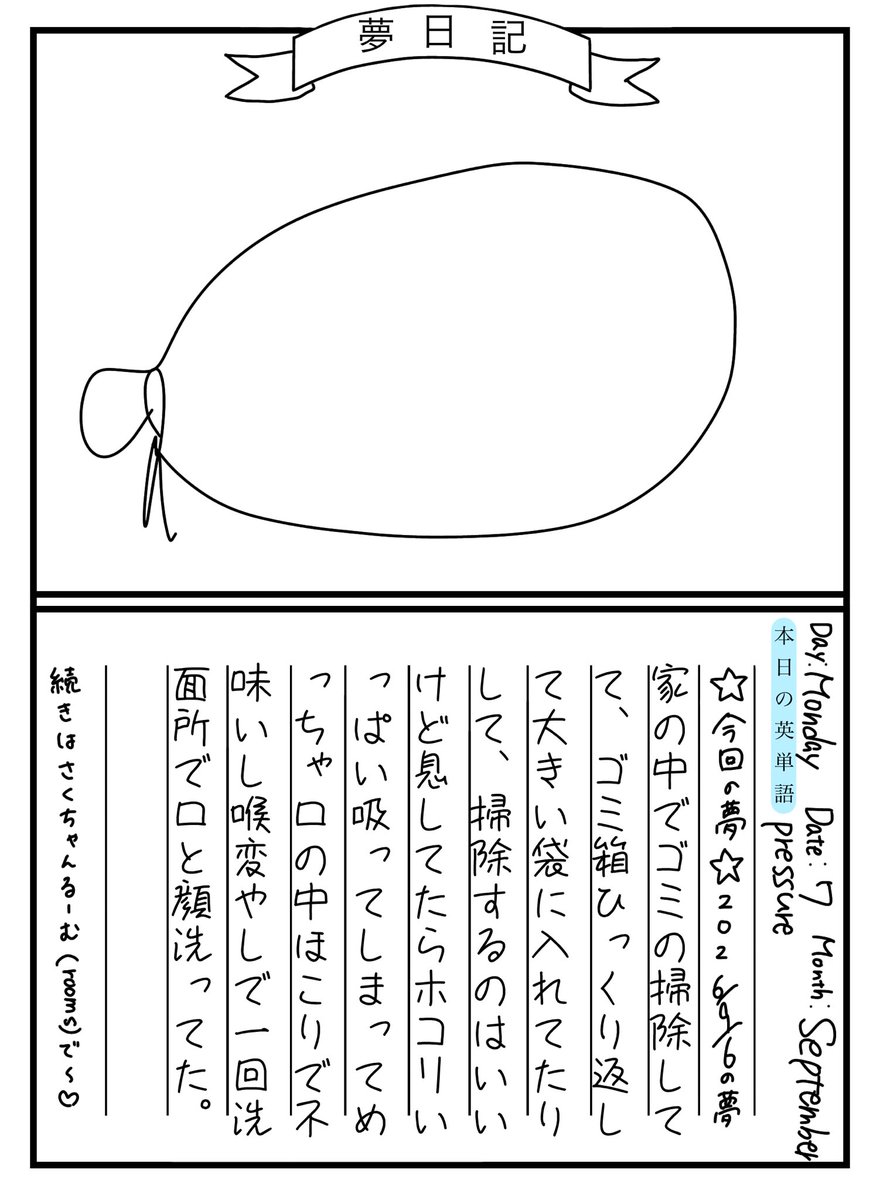 夢日記
Day: Monday Date: 7 Month: September
本日の英単語 pressure
☆今回の夢☆2026/9/6の夢
家の中でゴミの掃除して
て、ゴミ箱ひっくり返し
て大きい袋に入れてたり
して、掃除するのはいい
けど息してたらホコリい
っぱい吸ってしまってめ
っちゃ口の中ほこりで不
味いし喉変やしで一回洗
面所で口と顔洗ってた。
続きはさくちゃんるーむ(rooms)で〜♡